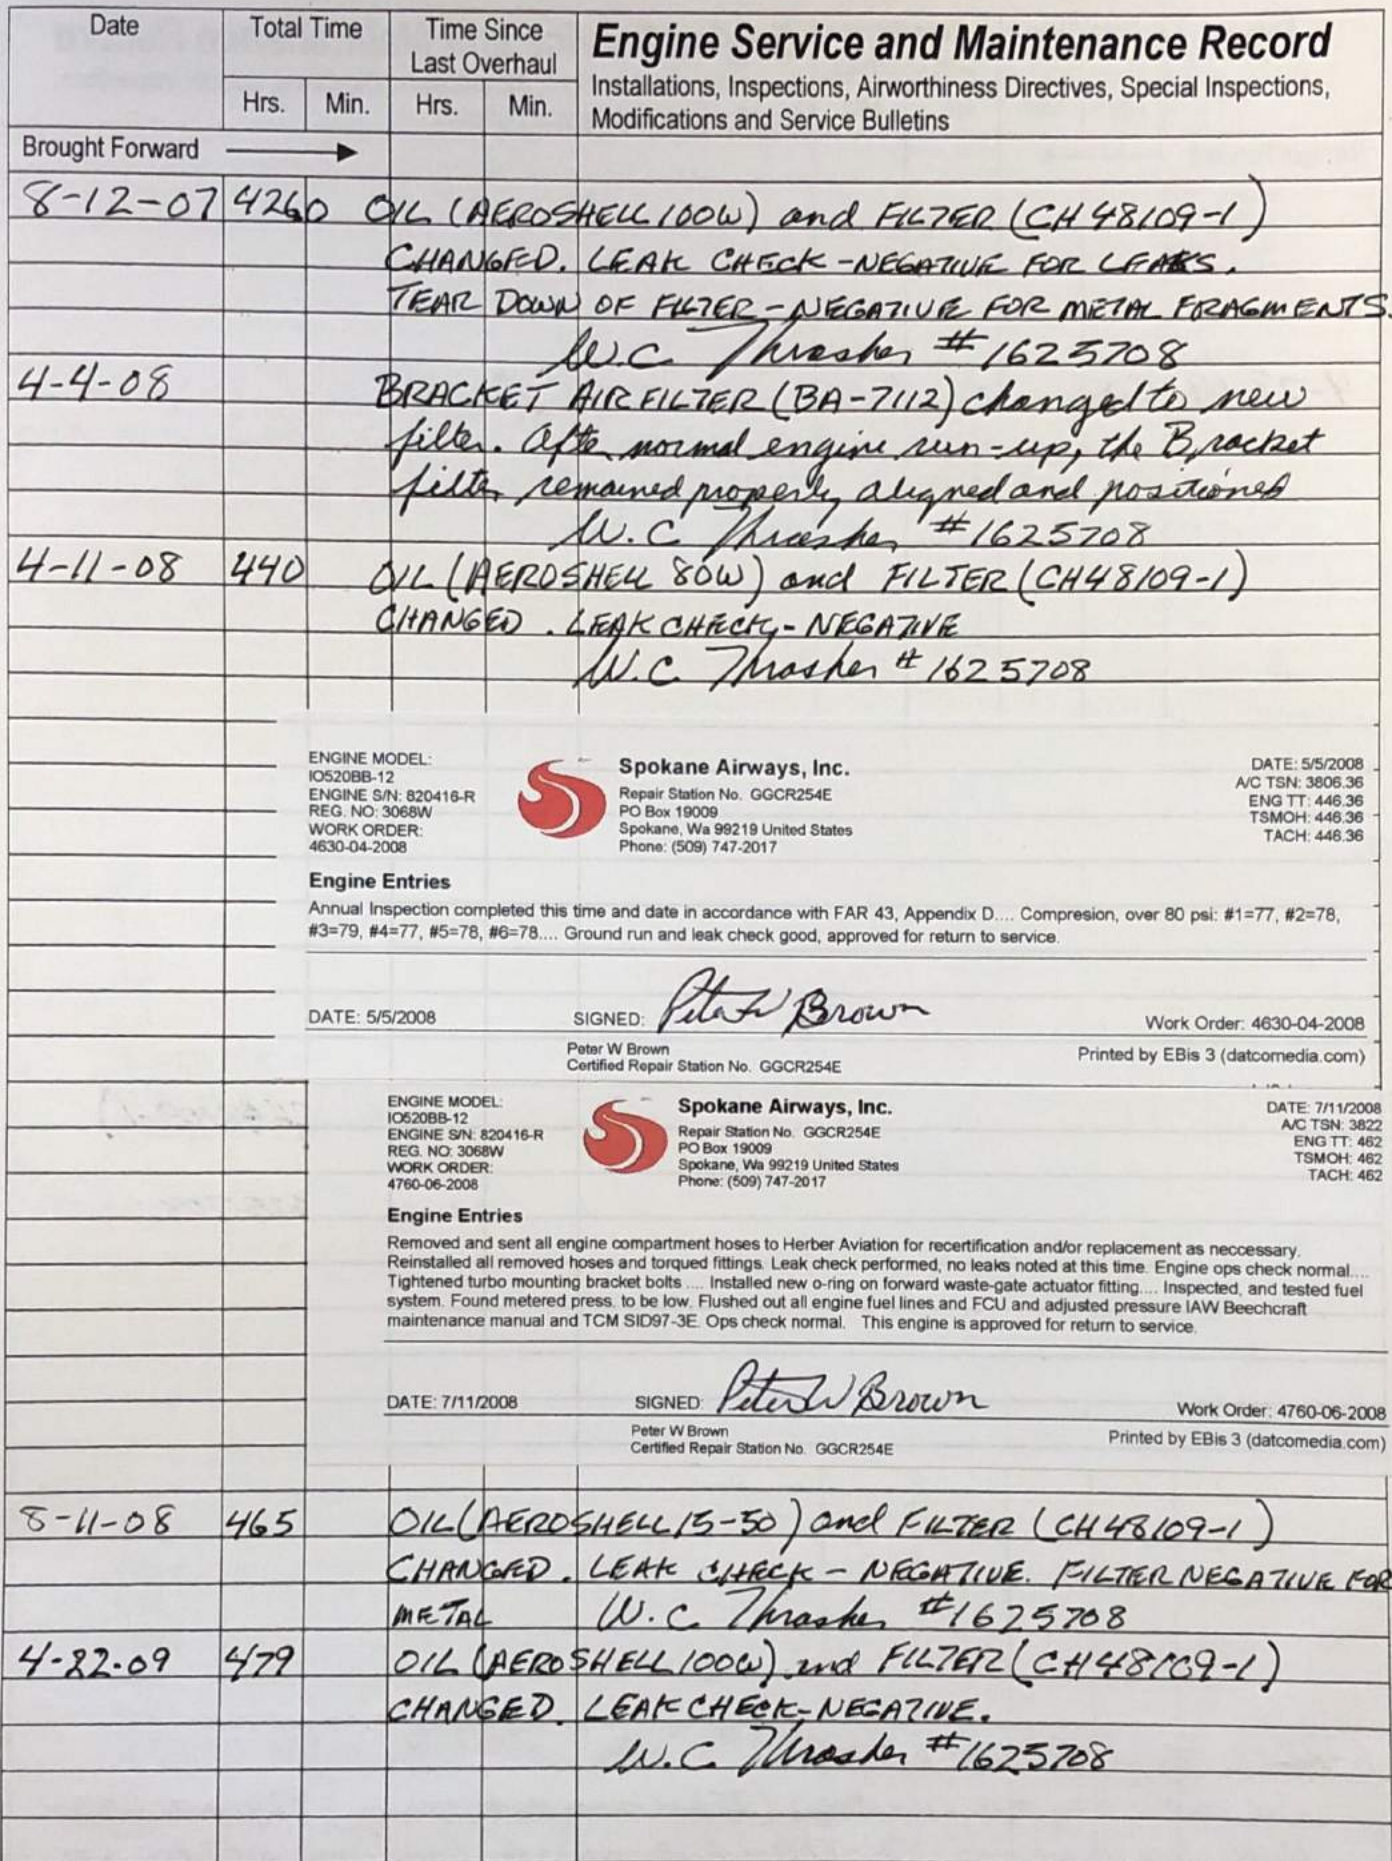 Date Total Time Time Since Last Overhaul Engine Service and Maintenance Record
Hrs. Min. Hrs. Min. Installations, Inspections, Airworthiness Directives, Special Inspections,
Modifications and Service Bulletins
Brought Forward
8-12-07 4260 OIL (AEROSHELL 100W) and FILTER (CH 48109-1)
CHANGED. LEAK CHECK - NEGATIVE FOR LEAKS.
TEAR DOWN OF FILTER - NEGATIVE FOR METAL FRAGMENTS.
W.C. Thrasher # 1625708
4-4-08 BRACKET AIR FILTER (BA-7112) changed to new
filter. After normal engine run-up, the Bracket
filter remained properly aligned and positioned
W.C. Thrasher #1625708
4-11-08 440 OIL (AEROSHELL 80W) and FILTER (CH48109-1)
CHANGED. LEAK CHECK - NEGATIVE
W.C. Thrasher # 1625708
ENGINE MODEL:
IO520BB-12
ENGINE S/N: 820416-R
REG. NO: 3068W
WORK ORDER:
4630-04-2008
Spokane Airways, Inc.
Repair Station No. GGCR254E
PO Box 19009
Spokane, Wa 99219 United States
Phone: (509) 747-2017
DATE: 5/5/2008
A/C TSN: 3806.36
ENG TT: 446.36
TSMOH: 446.36
TACH: 446.36
Engine Entries
Annual Inspection completed this time and date in accordance with FAR 43, Appendix D.... Compresion, over 80 psi: #1=77, #2=78,
#3=79, #4=77, #5=78, #6=78.... Ground run and leak check good, approved for return to service.
DATE: 5/5/2008 SIGNED: Peter W Brown Work Order: 4630-04-2008
Peter W Brown
Certified Repair Station No. GGCR254E
Printed by EBis 3 (datcomedia.com)
ENGINE MODEL:
IO520BB-12
ENGINE S/N: 820416-R
REG. NO: 3068W
WORK ORDER:
4760-06-2008
Spokane Airways, Inc.
Repair Station No. GGCR254E
PO Box 19009
Spokane, Wa 99219 United States
Phone: (509) 747-2017
DATE: 7/11/2008
A/C TSN: 3822
ENG TT: 462
TSMOH: 462
TACH: 462
Engine Entries
Removed and sent all engine compartment hoses to Herber Aviation for recertification and/or replacement as neccessary.
Reinstalled all removed hoses and torqued fittings. Leak check performed, no leaks noted at this time. Engine ops check normal....
Tightened turbo mounting bracket bolts .... Installed new o-ring on forward waste-gate actuator fitting.... Inspected, and tested fuel
system. Found metered press. to be low. Flushed out all engine fuel lines and FCU and adjusted pressure IAW Beechcraft
maintenance manual and TCM SID97-3E. Ops check normal. This engine is approved for return to service.
DATE: 7/11/2008 SIGNED: Peter W Brown Work Order: 4760-06-2008
Peter W Brown
Certified Repair Station No. GGCR254E
Printed by EBis 3 (datcomedia.com)
8-11-08 465 OIL (AEROSHELL 15-50) and FILTER (CH48109-1)
CHANGED. LEAK CHECK - NEGATIVE. FILTER NEGATIVE FOR
METAL W.C. Thrasher #1625708
4-22-09 479 OIL (AEROSHELL 100W) and FILTER (CH48109-1)
CHANGED. LEAK CHECK - NEGATIVE.
W.C. Thrasher #1625708